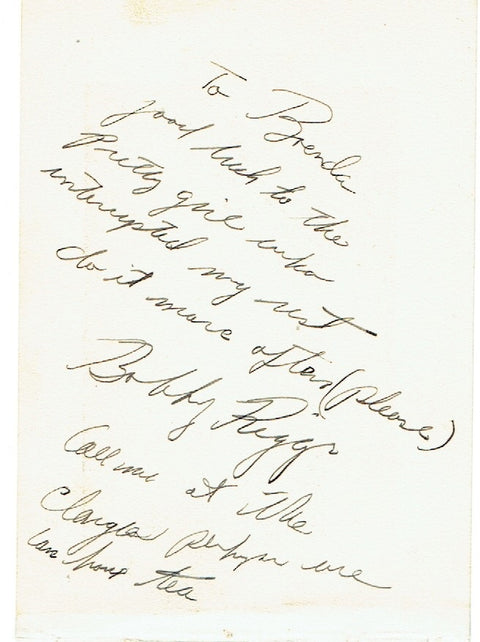 To Brenda
good luck to the
Pretty girl who
interrupted my rest
do it more often (please)
Bobby Riggs
Call me at the
perhaps we
can have tea